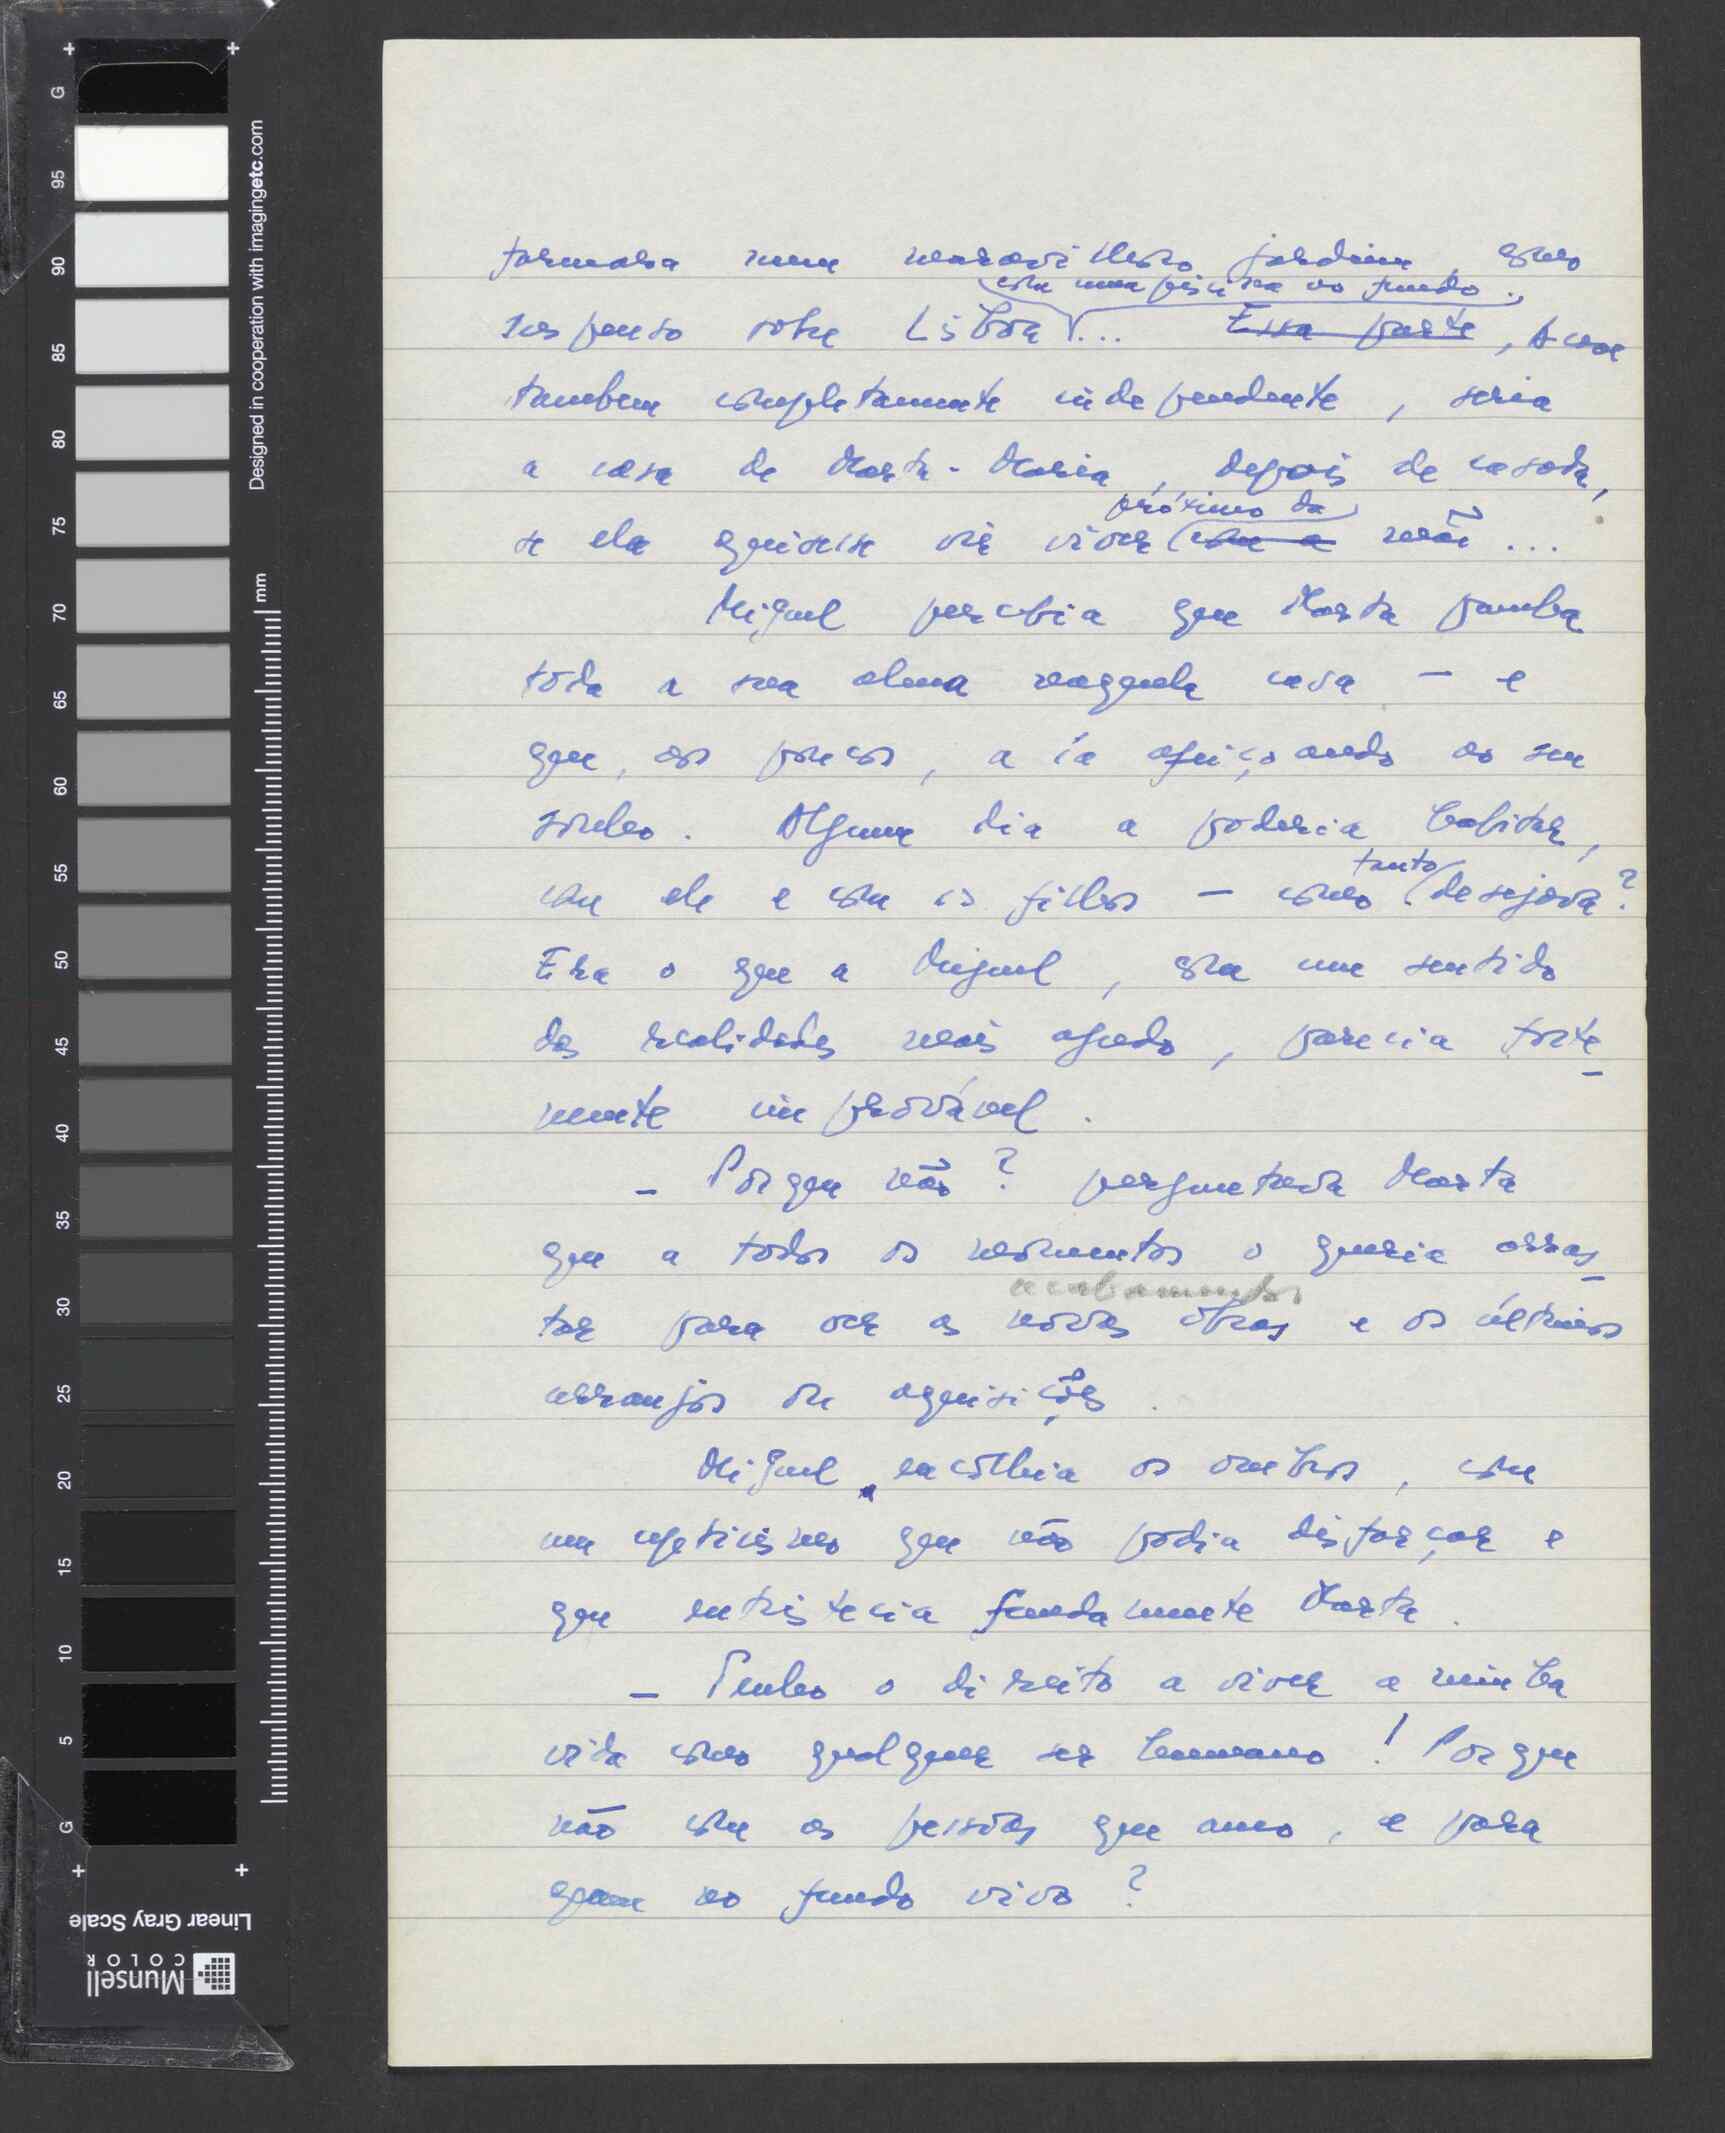 formara num maravilhoso jardim, como
com uma piscina ao fundo.
suspenso sobre Lisboa ... Essa parte, A casa
tambem completamente independente, seria
a casa de Marta-Maria, depois de casada,
próximo da
se ela quisesse vir viver com a mãe ...
Miguel percebia que Marta punha
toda a sua alma naquela casa — e
que, aos poucos, a ia afeiçoando ao seu
sonho. Algum dia a poderia habitar,
tanto
com ele e com os filhos — como desejava?
Era o que a Miguel, com um sentido
das realidades mais agudo, parecia forte-
mente improvável.
— Porque não? perguntava Marta
que a todos os momentos o queria arras-
acabamentos
tar para ver as novas obras e os últimos
arranjos ou aquisições.
Miguel encolhia os ombros, com
um cepticismo que não podia disfarçar e
que entristecia fundamente Marta.
— Tenho o direito a viver a minha
vida como qualquer ser humano! Porque
não com as pessoas que amo, e para
quem no fundo vivo?
G 95 90 85 80 75 70 65 60 55 50 45 40 35 30 25 20 15 10 5 G
Designed in cooperation with imagingetc.com
mm
Linear Gray Scale
Munsell
COLOR